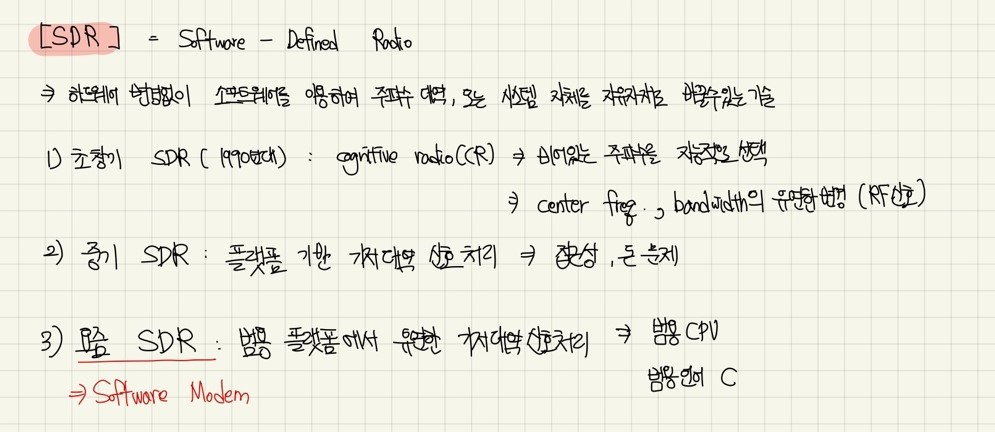 [SDR] = Software - Defined Radio
⇒ 하드웨어 변경없이 소프트웨어를 이용하여 주파수 대역, 또는 시스템 자체를 자유자재로 바꿀수있는 기술
1) 초창기 SDR (1990년대) : cognitive radio(CR) ⇒ 비어있는 주파수을 지능적으로 선택
⇒ center freq., bandwidth의 유연한 변경 (RF신호)
2) 중기 SDR : 플랫폼 기반 기저대역 신호처리 ⇒ 접근성, 돈 문제
3) 요즘 SDR : 범용 플랫폼에서 유연한 기저대역신호처리 ⇒ 범용 CPU
범용언어 C
⇒ Software Modem